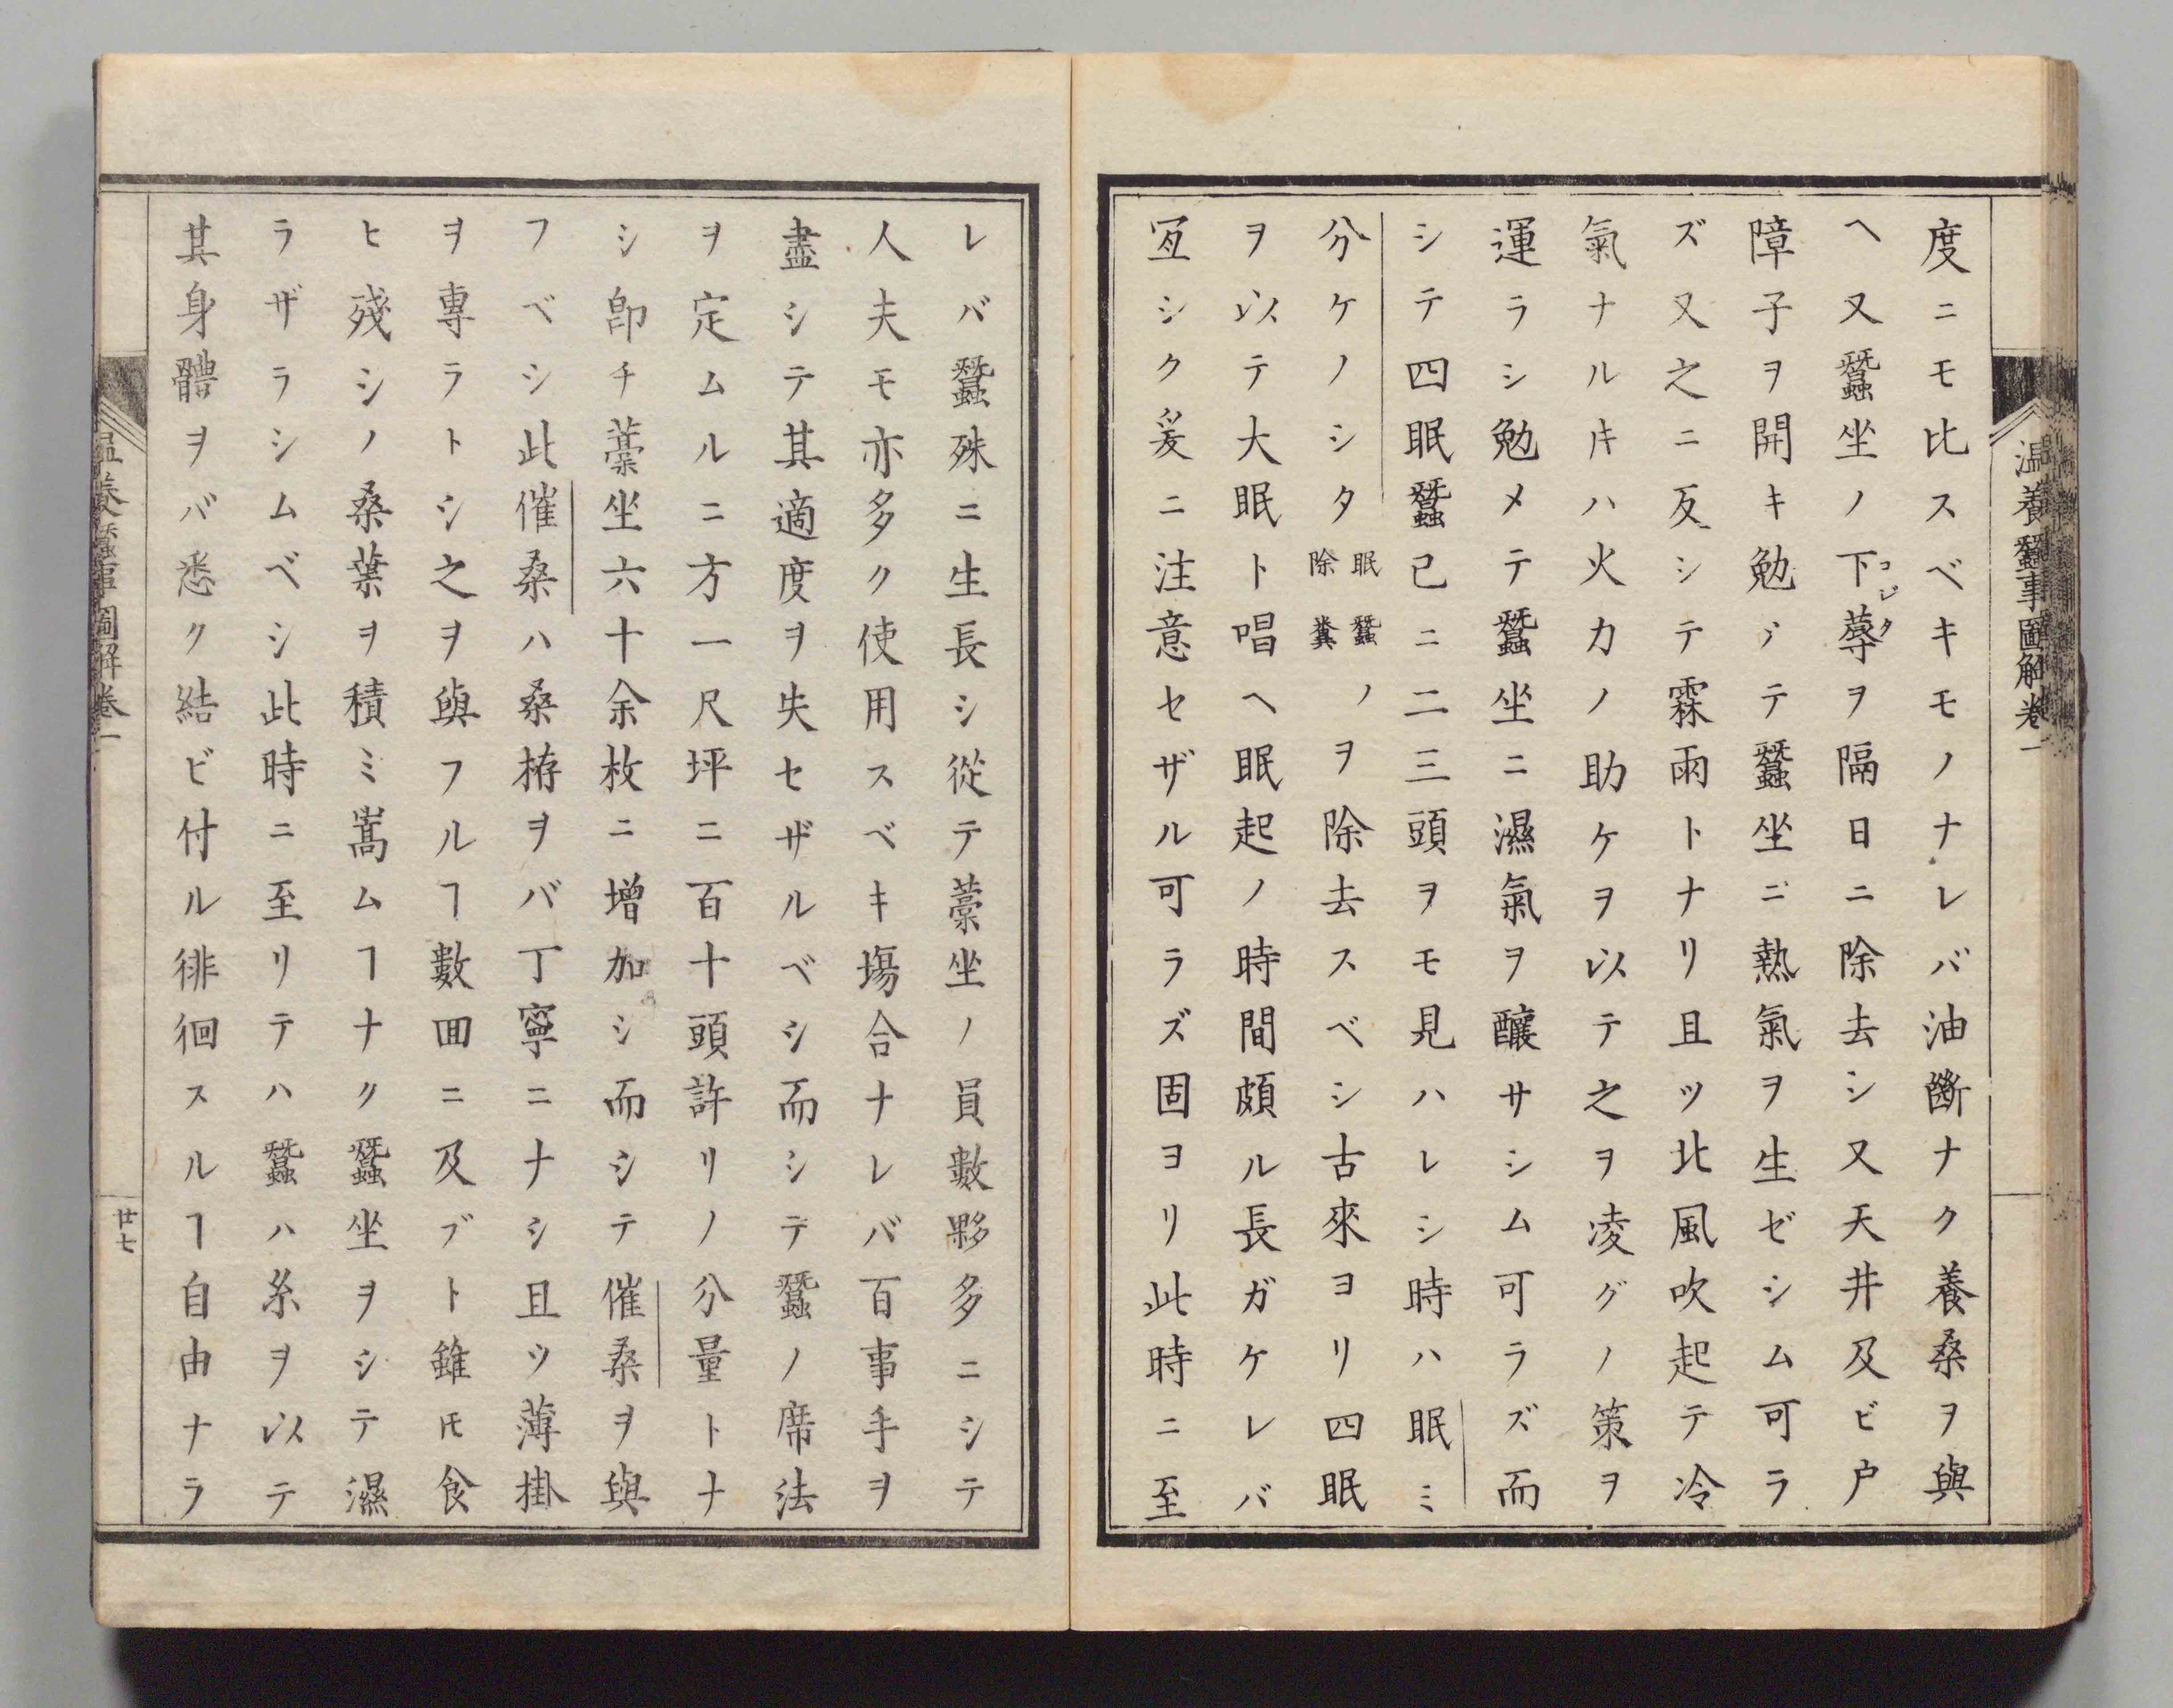 温養蠶事圖解卷一
度ニモ比スベキモノナレバ油斷ナク養桑ヲ與
ヘ又蠶坐ノ下蓐ヲ隔日ニ除去シ又天井及ビ戸
コレタ
障子ヲ開キ勉メテ蠶坐ニ熱氣ヲ生ゼシム可ラ
ズ又之ニ反シテ霖雨トナリ且ツ北風吹起テ冷
氣ナルキハ火カノ助ケヲ以テ之ヲ凌グノ策ヲ
運ラシ勉メテ蠶坐ニ濕氣ヲ釀サシム可ラズ而
シテ四眠蠶已ニ二三頭ヲモ見ハレシ時ハ眠ミ
分ケノシタ眠蠶除糞ノヲ除去スベシ古來ヨリ四眠
ヲ以テ大眠ト唱ヘ眠起ノ時間頗ル長ガケレバ
宜シク爰ニ注意セザル可ラズ固ヨリ此時ニ至
レバ蠶殊ニ生長シ從テ藁坐ノ員數夥多ニシテ
人夫モ亦多ク使用スベキ塲合ナレバ百事手ヲ
盡シテ其適度ヲ失セザルベシ而シテ蠶ノ席法
ヲ定ムルニ方一尺坪ニ百十頭許リノ分量トナ
シ卽チ藁坐六十余枚ニ增加シ而シテ催桑ヲ與
フベシ此催桑ハ桑栫ヲバ丁寧ニナシ且ツ薄掛
ヲ專ラトシ之ヲ與フルヿ數回ニ及ブト雖𪜈食
ヒ殘シノ桑葉ヲ積ミ嵩ムヿナク蠶坐ヲシテ濕
ラザラシムベシ此時ニ至リテハ蠶ハ糸ヲ以テ
其身體ヲバ悉ク結ビ付ル徘徊スルヿ自由ナラ
温養蠶事圖解卷一
廿七